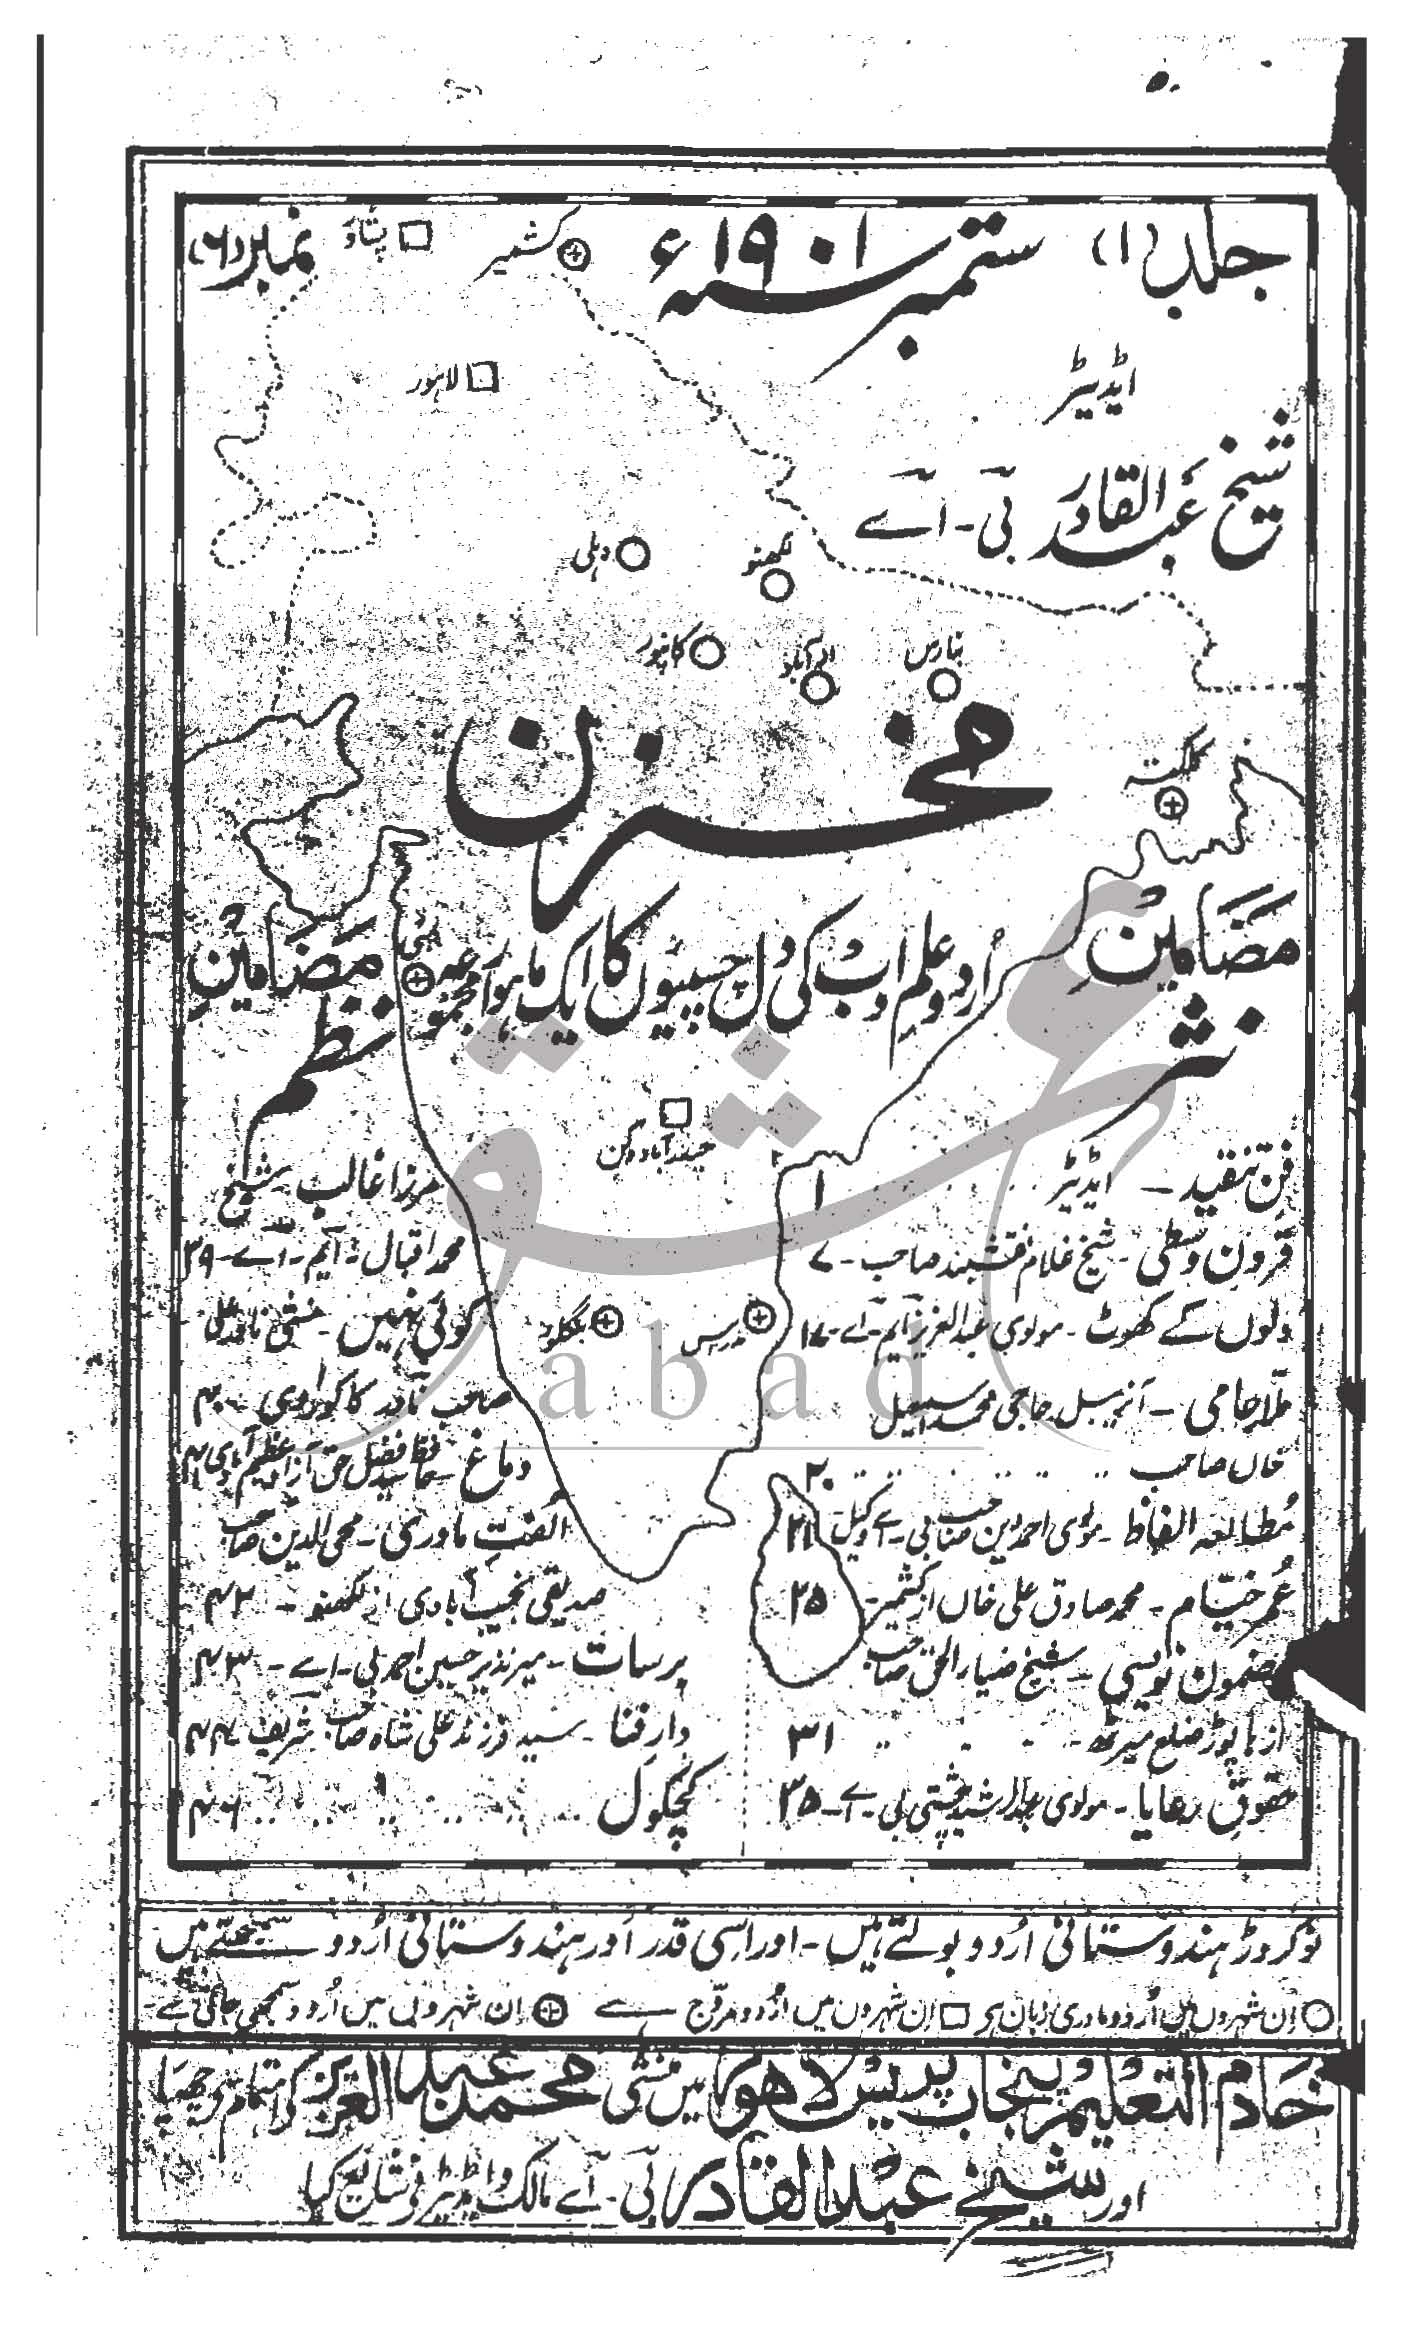 جلد (۱)
ستمبر سنہ ۱۹۰۱ء
نمبر (۶)
کشمیر
پشاور
لاہور
ایڈیٹر
شیخ عبدالقادر بی-اے
دہلی
لکھنؤ
کانپور
الہ آباد
بنارس
کلکتہ
مخزن
اردو علم و ادب کی دلچسپیوں کا ایک ماہوار مجموعہ
بمبئی
حیدرآباد دکن
بنگلور
مدراس
مضامین
نثر
فن تنقید - ایڈیٹر ۱
قرون وسطی - شیخ غلام نقشبند صاحب - ۷
دلوں کے کھوٹ - مولوی عبدالعزیز ایم-اے - ۱۷
ملا جامی - آنریبل حاجی محمد اسمعیل
خاں صاحب ۲۰
مطالعہ الفاظ - مولوی احمد دین صاحب بی-اے وکیل ۲۱
عمر خیام - محمد صادق علی خاں از کشمیر - ۲۵
مضمون نویسی - شیخ ضیاء الحق صاحب
از ہاپوڑ ضلع میرٹھ - ۳۱
حقوق رعایا - مولوی عبدالرشید چشتی بی-اے - ۳۵
مضامین
نظم
مرزا غالب - شیخ
محمد اقبال - ایم-اے - ۳۹
کوئی نہیں - منشی نادر علی
صاحب نادر کاکوروی - ۴۰
دماغ - حافظ سید فضل حق آزاد عظیم آبادی ۴۱
الفت مادری - محی الدین صاحب
صدیقی نجیب آبادی از لکھنو - ۴۲
برسات - میر نذیر حسین احمد بی-اے - ۴۳
دار فنا - سید فرزند علی شاہ صاحب شریف ۴۴
کچکول ۴۶
نو کروڑ ہندوستانی اردو بولتے ہیں - اور اسی قدر اور ہندوستانی اردو سمجھتے ہیں
ان شہروں میں اردو مادری زبان ہے ان شہروں میں اردو مروج ہے ان شہروں میں اردو سمجھی جاتی ہے -
خادم التعلیم پنجاب پریس لاہور میں منشی محمد عبد العزیز کے اہتمام سے چھپا
اور شیخ عبدالقادر بی-اے مالک و ایڈیٹر نے شائع کیا
عشق
abad